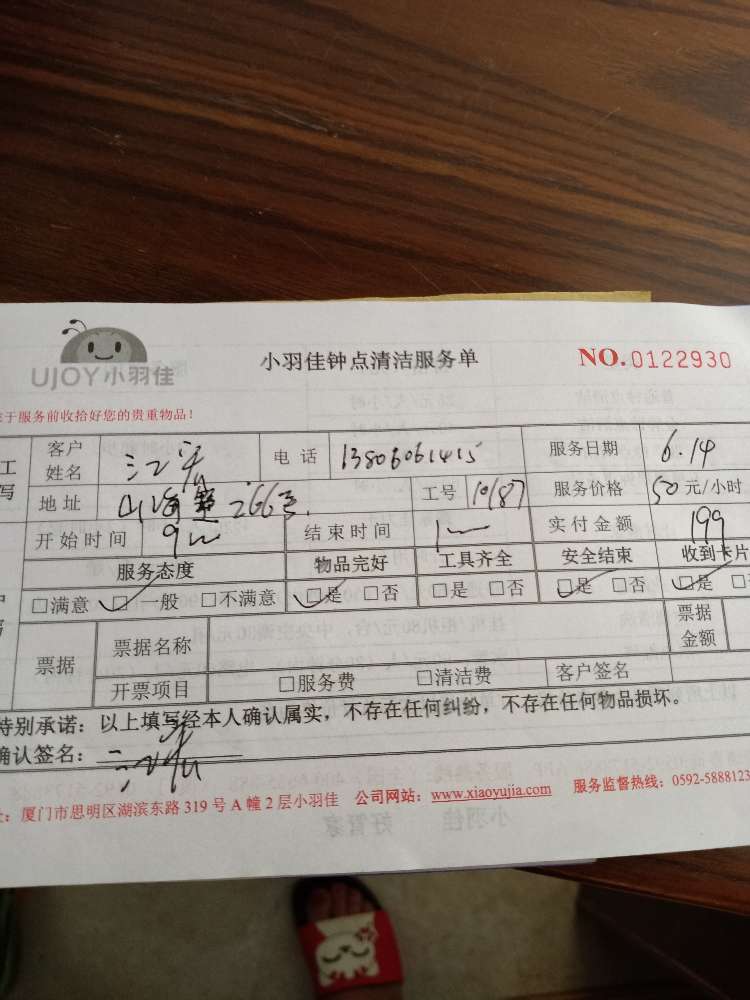 UJOY小羽佳
小羽佳钟点清洁服务单
NO.0122930
于服务前收拾好您的贵重物品!
工
写
客户
姓名
电话 13806061415 服务日期 6.14
地址 266 工号 10187 服务价格 50 元/小时
开始时间 9 结束时间 1 实付金额 199
服务态度 物品完好 工具齐全 安全结束 收到卡片
□满意 □一般 □不满意 □是 □否 □是 □否 □是 □否 □是
票据 票据名称 票据
金额
开票项目 □服务费 □清洁费 客户签名
特别承诺:以上填写经本人确认属实,不存在任何纠纷,不存在任何物品损坏。
确认签名:
:厦门市思明区湖滨东路 319 号 A 幢 2 层小羽佳 公司网站:www.xiaoyujia.com 服务监督热线:0592-5888123